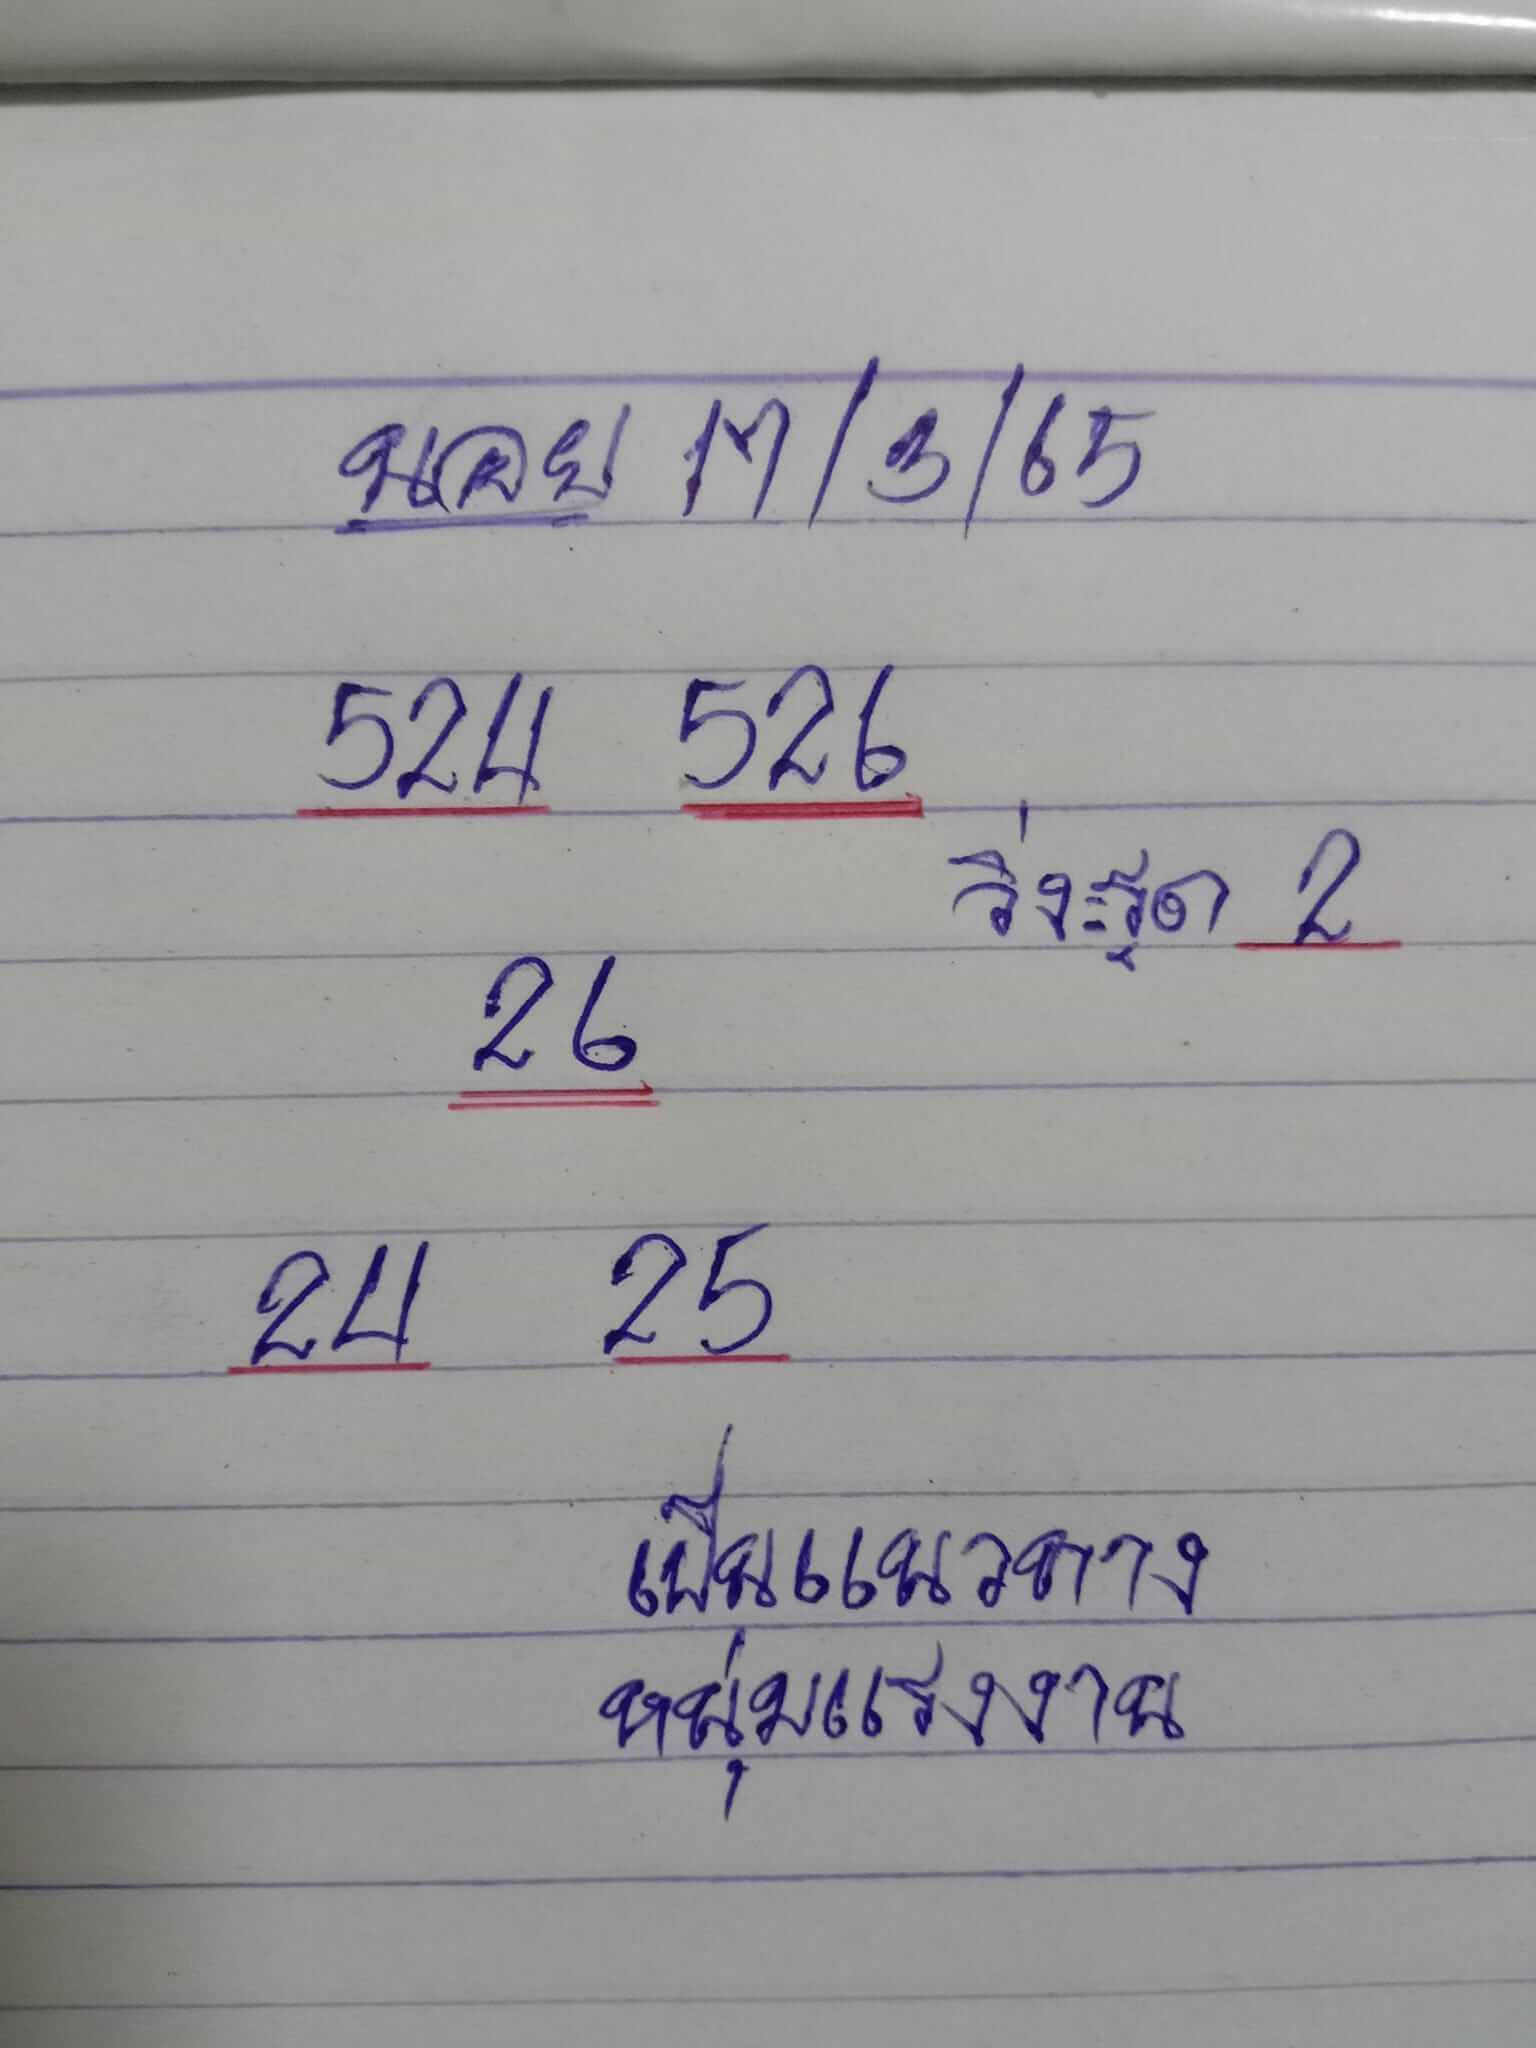 นอย 17/3/65
524 526
วิ่งะรูด 2
26
24 25
เป็นแนวทาง
หนุ่มแรงงาน